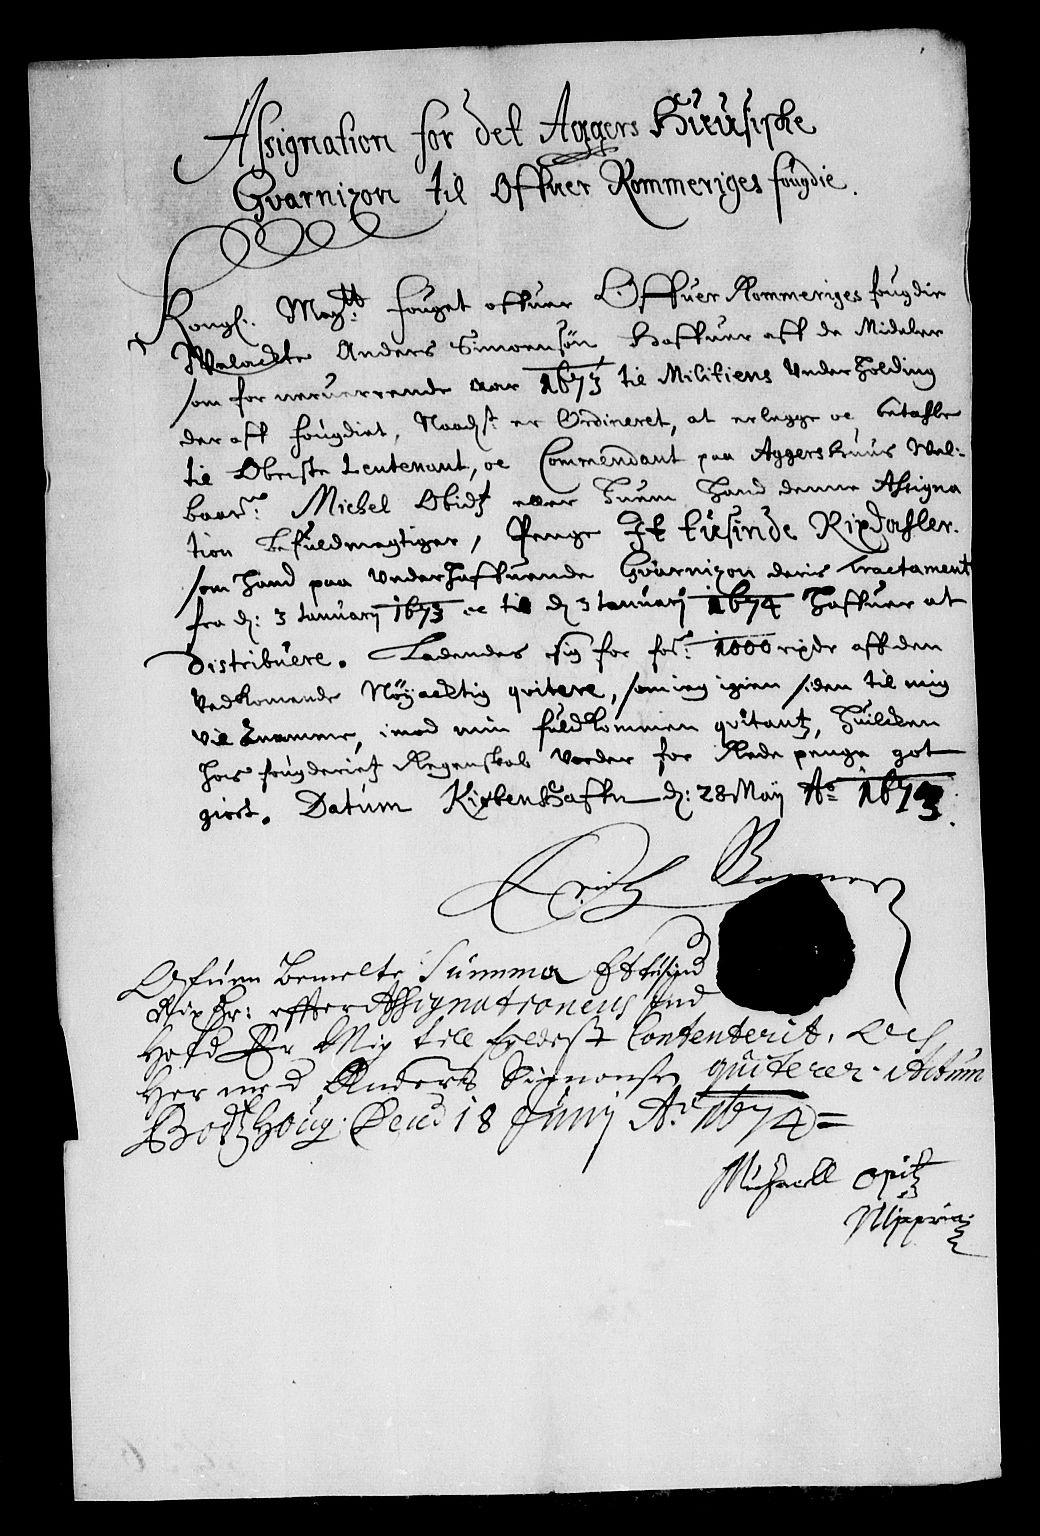 Assignation for det Aggers Huusiske
Gvarnizon til Offuer Rommeriges fougdie.
Kongl: Maytt: fouget offuer Offuer Rommeriges fougdie
Welactte Anders Simonsøn Haffuer aff de Mideler
som for neruerrende aar 1673 til Militiens Underholding
der aff fougdiet, Naadst: er Ordineret, at erlegge oc betahle
til Oberste Leutenant, oc Commendant paa Aggershuus Wel-
baarne: Michel Obidtz eller huem hand denne Assigna
tion befuldmegtiger, Penge Et tusinde Rixdahler.
som hand paa underhaffuende Gvarnizon deris Tractament
fra d: 3 Januarij 1673 oc til d 3 Januarij 1674 haffuer at
distribuere. Ladendes sig for forne: 1000 rixdr aff den
vedkomende Nøyacktig qvitere, som ieg igien siden til mig
vil annamme, imod min fuldkommen qvitantz, huilcken
hos fougderietz Regenskab vorder for Rede penge got
giort. Datum Kiøbenhaffn d: 28 Maij Ao 1673.
Erich Banner
Ofuen bemelte Summa Et tusind
Rix dr: effter Assignationens Ind
Hold Er Mig till fyldest Contenterit, Och
Her med Anders Simonsen quiterer. Actum
Bodtzhoug. Dend 18 Junij Ao 1674=
Michaell Opitz
Mppria.